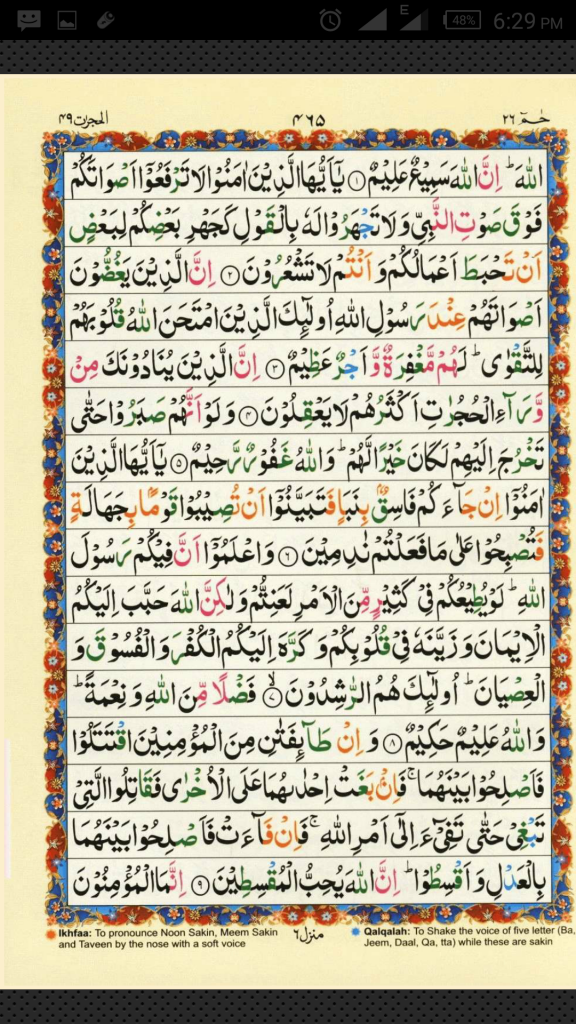 E 48% 6:29 PM
الحجرت ۴۹ ۴۶۵ حٰمٓ ۲۶
اللّٰهَ ؕ اِنَّ اللّٰهَ سَمِيْعٌ عَلِيْمٌ ۝۱ يٰۤاَيُّهَا الَّذِيْنَ اٰمَنُوْا لَا تَرْفَعُوْۤا اَصْوَاتَكُمْ
فَوْقَ صَوْتِ النَّبِيِّ وَلَا تَجْهَرُوْا لَهٗ بِالْقَوْلِ كَجَهْرِ بَعْضِكُمْ لِبَعْضٍ
اَنْ تَحْبَطَ اَعْمَالُكُمْ وَ اَنْتُمْ لَا تَشْعُرُوْنَ ۝۲ اِنَّ الَّذِيْنَ يَغُضُّوْنَ
اَصْوَاتَهُمْ عِنْدَ رَسُوْلِ اللّٰهِ اُولٰٓئِكَ الَّذِيْنَ امْتَحَنَ اللّٰهُ قُلُوْبَهُمْ
لِلتَّقْوٰى ؕ لَهُمْ مَّغْفِرَةٌ وَّ اَجْرٌ عَظِيْمٌ ۝۳ اِنَّ الَّذِيْنَ يُنَادُوْنَكَ مِنْ
وَّرَآءِ الْحُجُرٰتِ اَكْثَرُهُمْ لَا يَعْقِلُوْنَ ۝۴ وَ لَوْ اَنَّهُمْ صَبَرُوْا حَتّٰى
تَخْرُجَ اِلَيْهِمْ لَكَانَ خَيْرًا لَّهُمْ ؕ وَ اللّٰهُ غَفُوْرٌ رَّحِيْمٌ ۝۵ يٰۤاَيُّهَا الَّذِيْنَ
اٰمَنُوْۤا اِنْ جَآءَكُمْ فَاسِقٌۢ بِنَبَاٍ فَتَبَيَّنُوْۤا اَنْ تُصِيْبُوْا قَوْمًۢا بِجَهَالَةٍ
فَتُصْبِحُوْا عَلٰى مَا فَعَلْتُمْ نٰدِمِيْنَ ۝۶ وَ اعْلَمُوْۤا اَنَّ فِيْكُمْ رَسُوْلَ
اللّٰهِ ؕ لَوْ يُطِيْعُكُمْ فِيْ كَثِيْرٍ مِّنَ الْاَمْرِ لَعَنِتُّمْ وَ لٰكِنَّ اللّٰهَ حَبَّبَ اِلَيْكُمُ
الْاِيْمَانَ وَ زَيَّنَهٗ فِيْ قُلُوْبِكُمْ وَ كَرَّهَ اِلَيْكُمُ الْكُفْرَ وَ الْفُسُوْقَ وَ
الْعِصْيَانَ ؕ اُولٰٓئِكَ هُمُ الرّٰشِدُوْنَ ۝۷ۙ فَضْلًا مِّنَ اللّٰهِ وَ نِعْمَةً ؕ
وَ اللّٰهُ عَلِيْمٌ حَكِيْمٌ ۝۸ وَ اِنْ طَآئِفَتٰنِ مِنَ الْمُؤْمِنِيْنَ اقْتَتَلُوْا
فَاَصْلِحُوْا بَيْنَهُمَا ۚ فَاِنْۢ بَغَتْ اِحْدٰىهُمَا عَلَى الْاُخْرٰى فَقَاتِلُوا الَّتِيْ
تَبْغِيْ حَتّٰى تَفِيْٓءَ اِلٰۤى اَمْرِ اللّٰهِ ۚ فَاِنْ فَآءَتْ فَاَصْلِحُوْا بَيْنَهُمَا
بِالْعَدْلِ وَ اَقْسِطُوْا ؕ اِنَّ اللّٰهَ يُحِبُّ الْمُقْسِطِيْنَ ۝۹ اِنَّمَا الْمُؤْمِنُوْنَ
Ikhfaa: To pronounce Noon Sakin, Meem Sakin
and Taveen by the nose with a soft voice
منزل ۶
Qalqalah: To Shake the voice of five letter (Ba,
Jeem, Daal, Qa, tta) while these are sakin